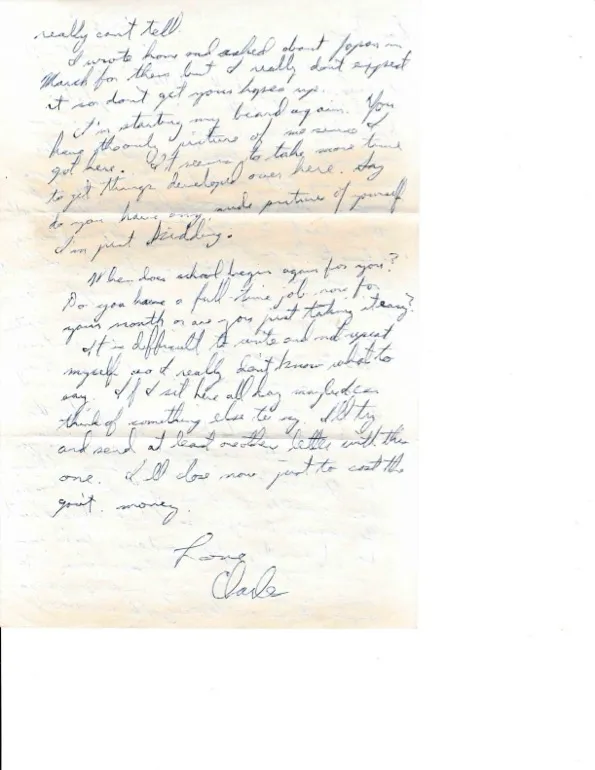 really can't tell.
I wrote home and asked about Japan in
March for them but I really don't expect
it so don't get your hopes up.
I'm starting my beard again. You
have the only picture of me since I
got here. It seems to take more time
to get things developed over here. Say
do you have any nude pictures of yourself
I'm just kidding.
When does school begin again for you?
Do you have a full time job now for
your month or are you just taking it easy?
It is difficult to write and not repeat
myself and I really don't know what to
say. If I sit here all day maybe I can
think of something else to say. I'll try
and send at least another letter with this
one. I'll close now just to cost the
gov't. money.
Love
Charles